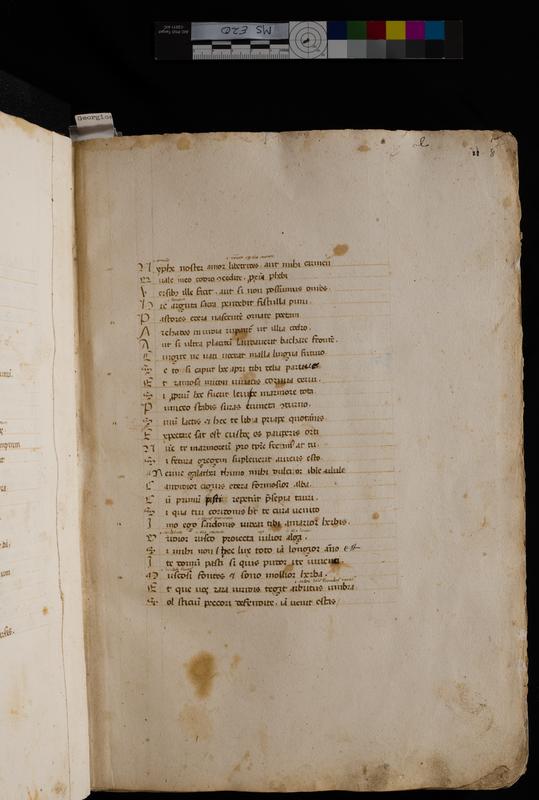 MS E20
Georgics
8
Nymphe noster amor libetrites. aut mihi carmen
quale meo codro concedite. proxima phebi
Versibus ille facit. aut si non possumus omnes.
hic arguta sacra pendebit fistulla pinu.
Pastores edera nascente ornate poetam
Archades invidia rumpantur ut illia codro.
Aut si ultra placitum laudaverit bachare frontem.
Cingite ne vati noceat malla lingua futuro
Setosi caput hec apri tibi delia parvus
Et ramosi micon vivacis cornua cervi.
Si proprium hec fuerit levi de marmore tota
Puniceo stabis suras evincta coturno.
Sinum lactis et hec te liba priape quotannis
Expectare sat est custos es pauperis orti
Nunc te marmoreum pro tempore fecimus at tu.
Si fetura gregem supleverit aureus esto.
Nerine galathea thimo mihi dulcior ible
Candidior cignis edera formosior alba.
Cum primum pasti repetent presepia tauri.
Si qua tui coridonis habet te cura venito
Imo ego sardonis videar tibi amarior herbis.
Oridior rusco proiecta vilior alga.
Si mihi non hec lux toto iam longior anno est
Ite domum pasti si quis pudor ite iuvenci.
Muscosi fontes et somno mollior herba.
Et que vos rara viridis tegit arbutus umbra
Solsticium pecori defendite. iam venit estas